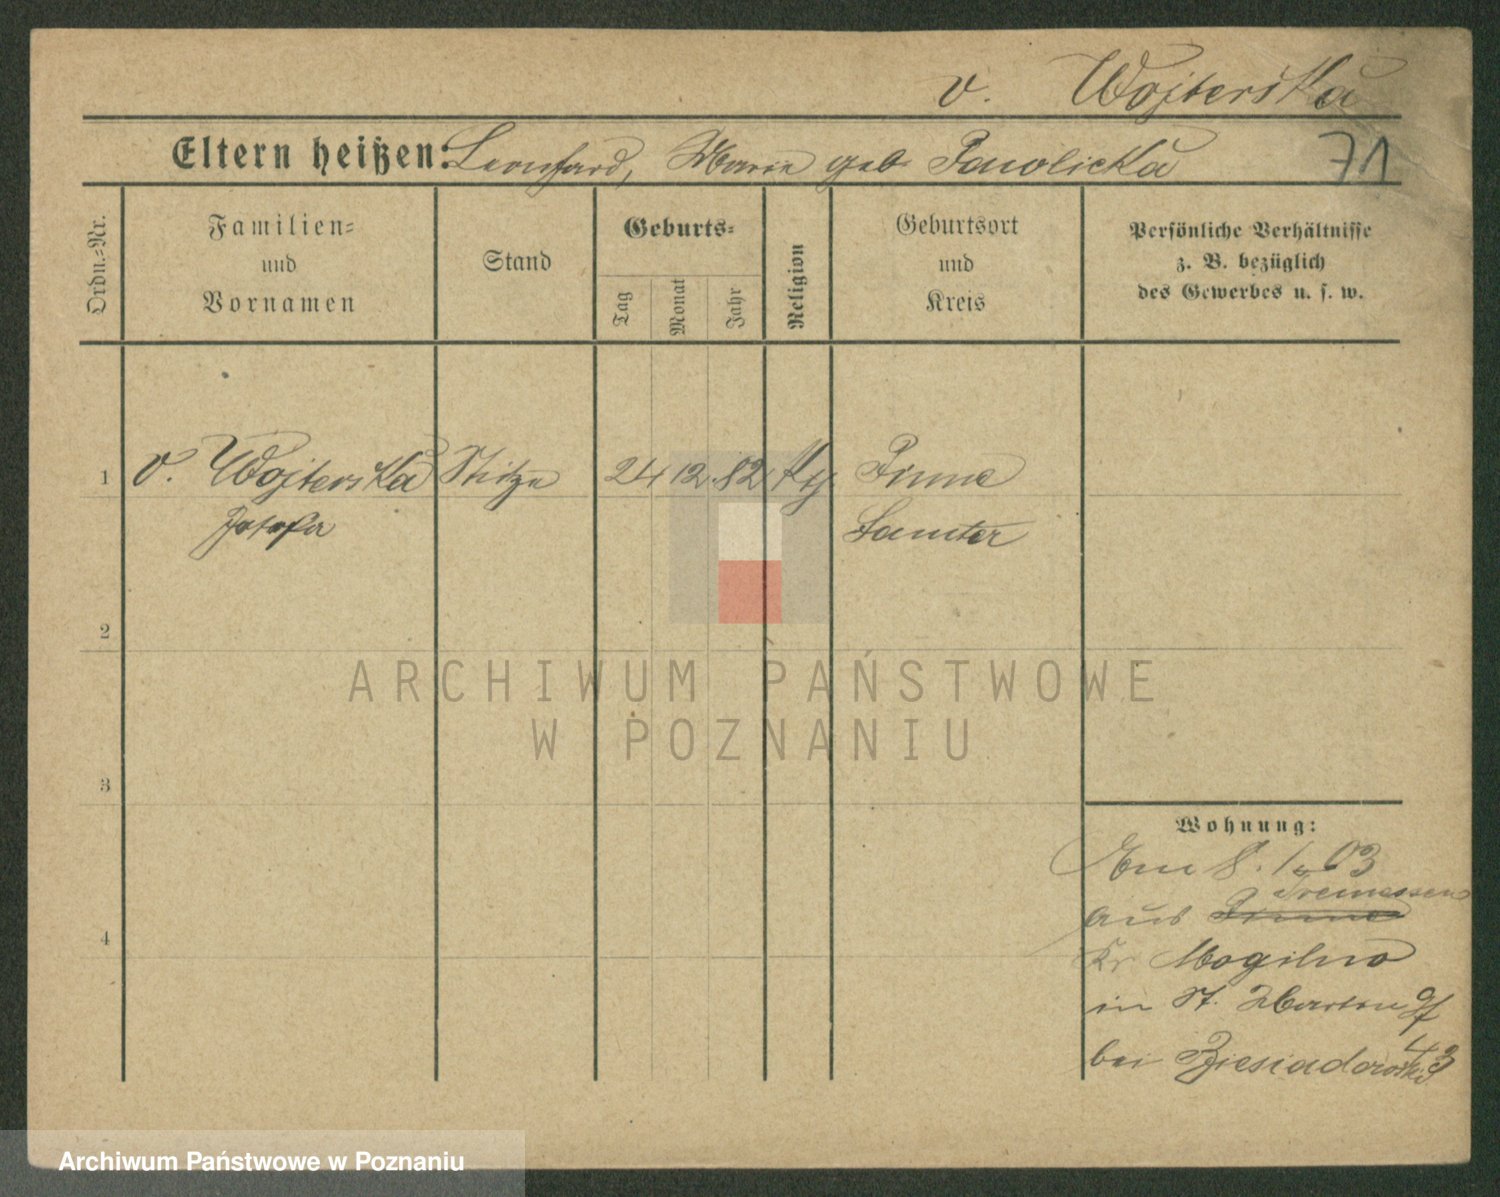 v. Wojterska
Eltern heißen: Leonhard, Marie geb Pawlicka
71
Ordn.-Nr.
Familien-
und
Vornamen
Stand
Geburts-
Tag
Monat
Jahr
Religion
Geburtsort
und
Kreis
Persönliche Verhältnisse
z. B. bezüglich
des Gewerbes u. s. w.
1 v. Wojterska Stütze 24 12. 82 Pinne
Josefa Samter
2
3
4
Wohnung:
Am 8. 1. 03
Tremessen
aus Pinne
Kr Mogilno
in St. Martin
43
bei Biesiadowski
ARCHIWUM PAŃSTWOWE
W POZNANIU
Archiwum Państwowe w Poznaniu